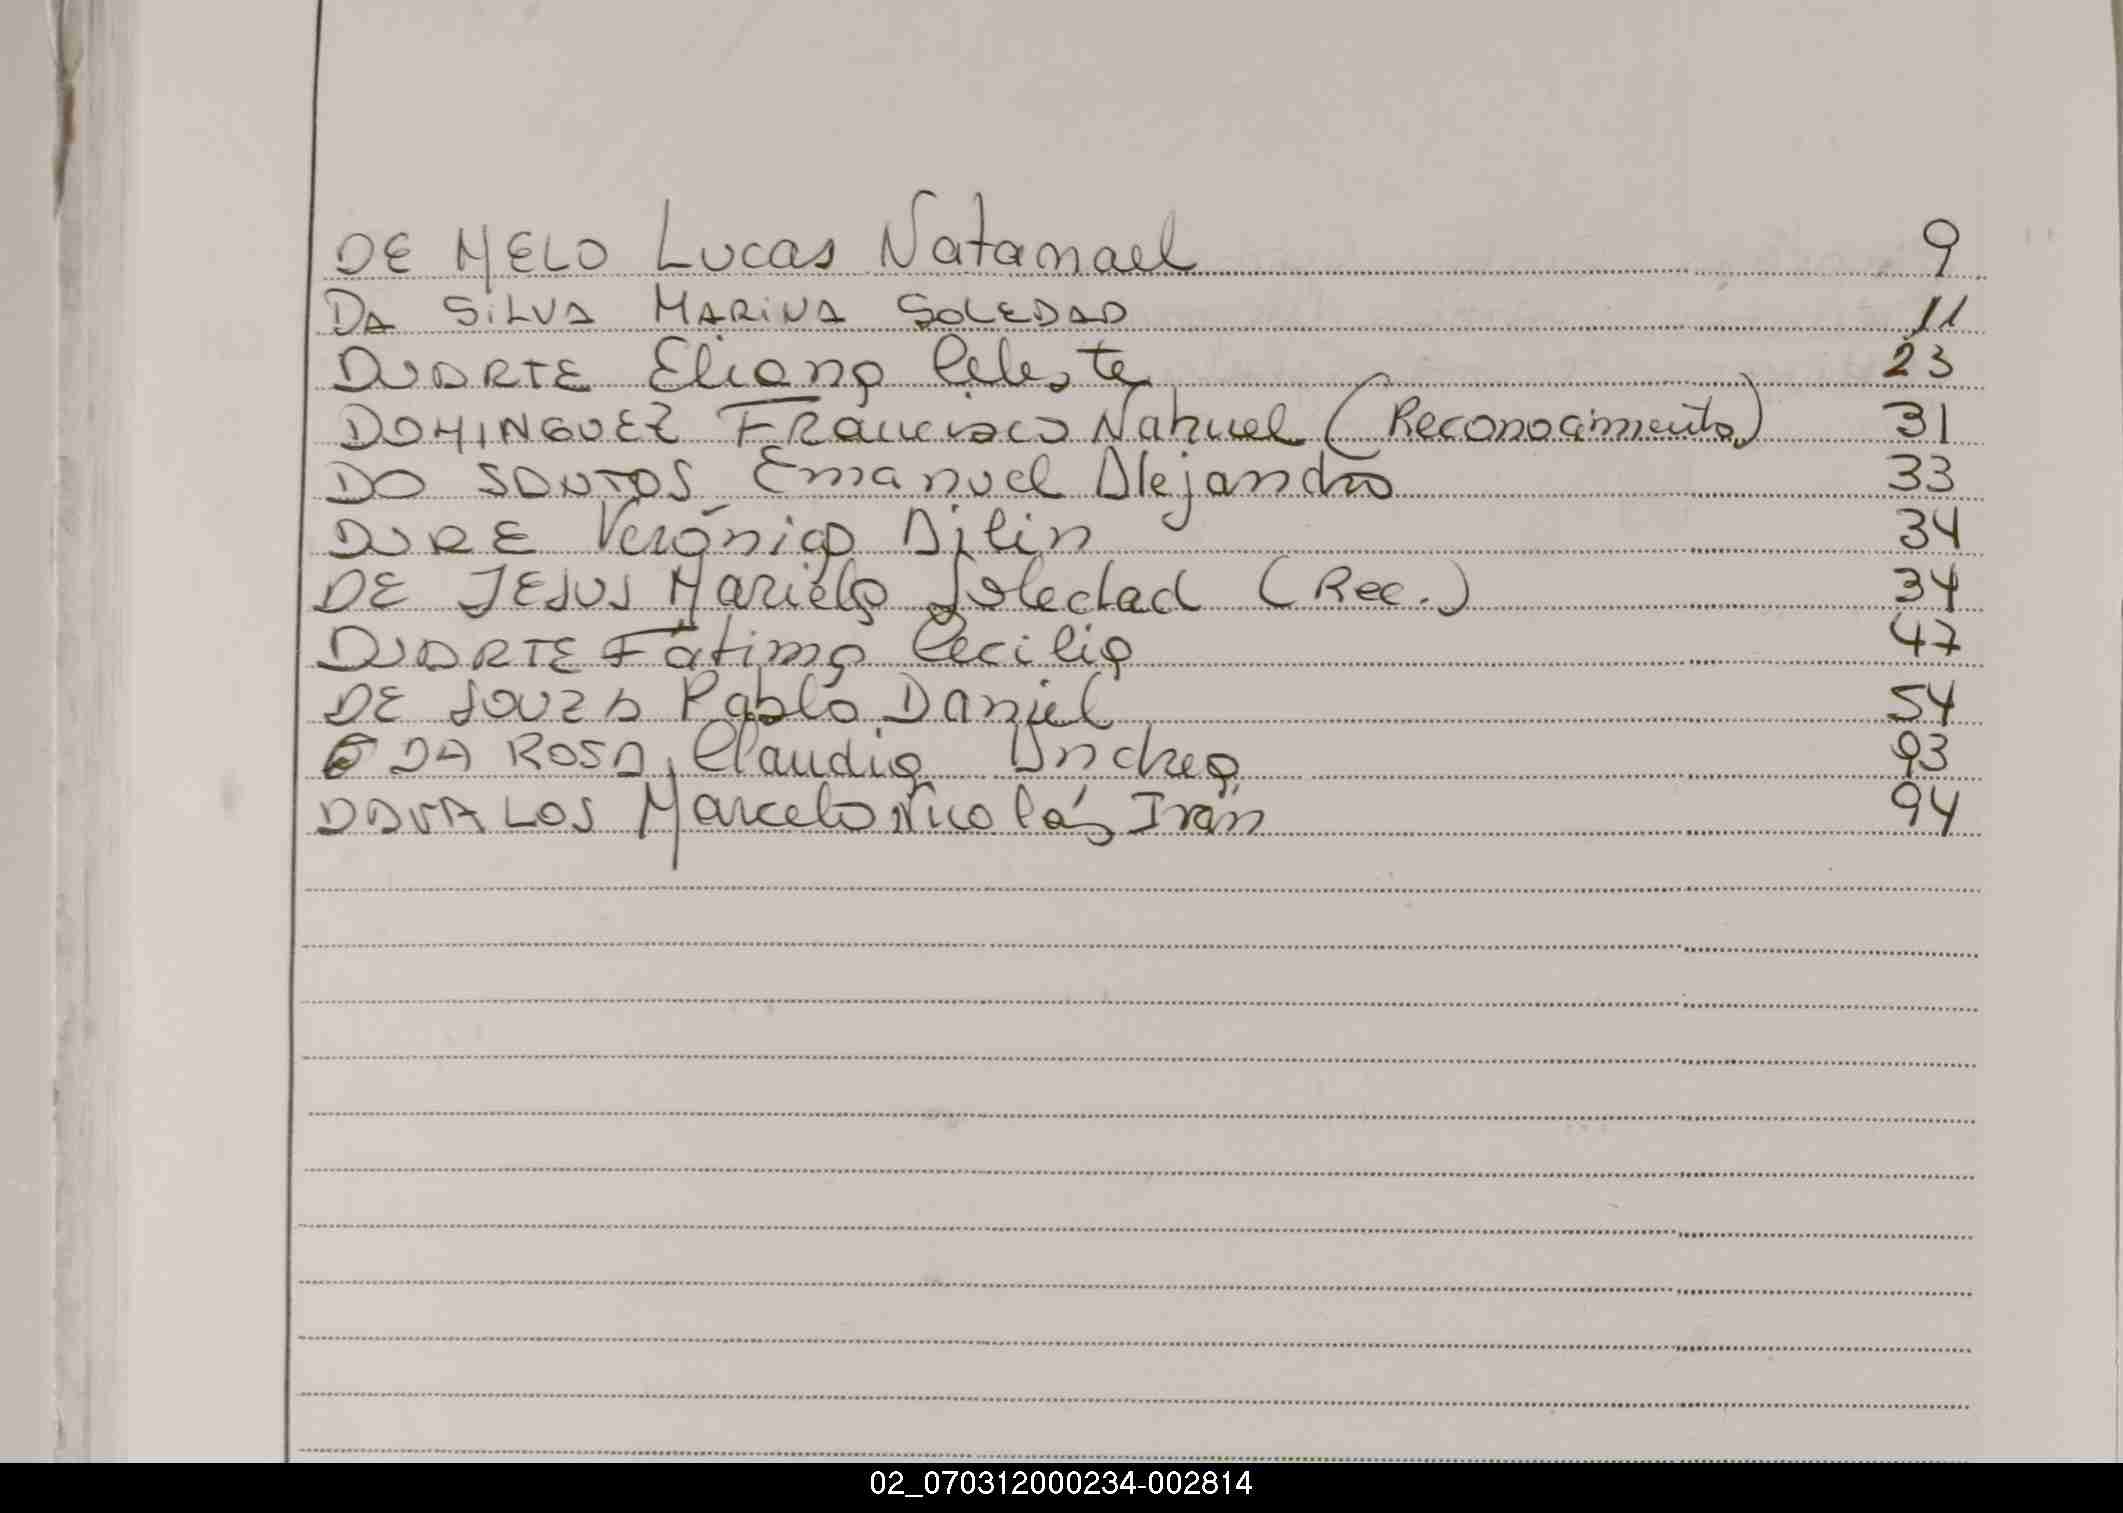 DE MELO Lucas Natanael 9
DA SILVA MARINA SOLEDAD 11
DUARTE Eliana Celeste 23
DOMINGUEZ FRancisco Nahuel (Reconocimiento) 31
DO SANTOS Emanuel Alejandro 33
DURE Verónica Ailin 34
DE JESUS Mariela Soledad (Rec.) 34
DUARTE Fátima Cecilia 47
DE SOUZA Pablo Daniel 54
DA ROSA, Claudia Andrea 93
DAVALOS Marcelo Nicolás Iván 94
02_070312000234-002814